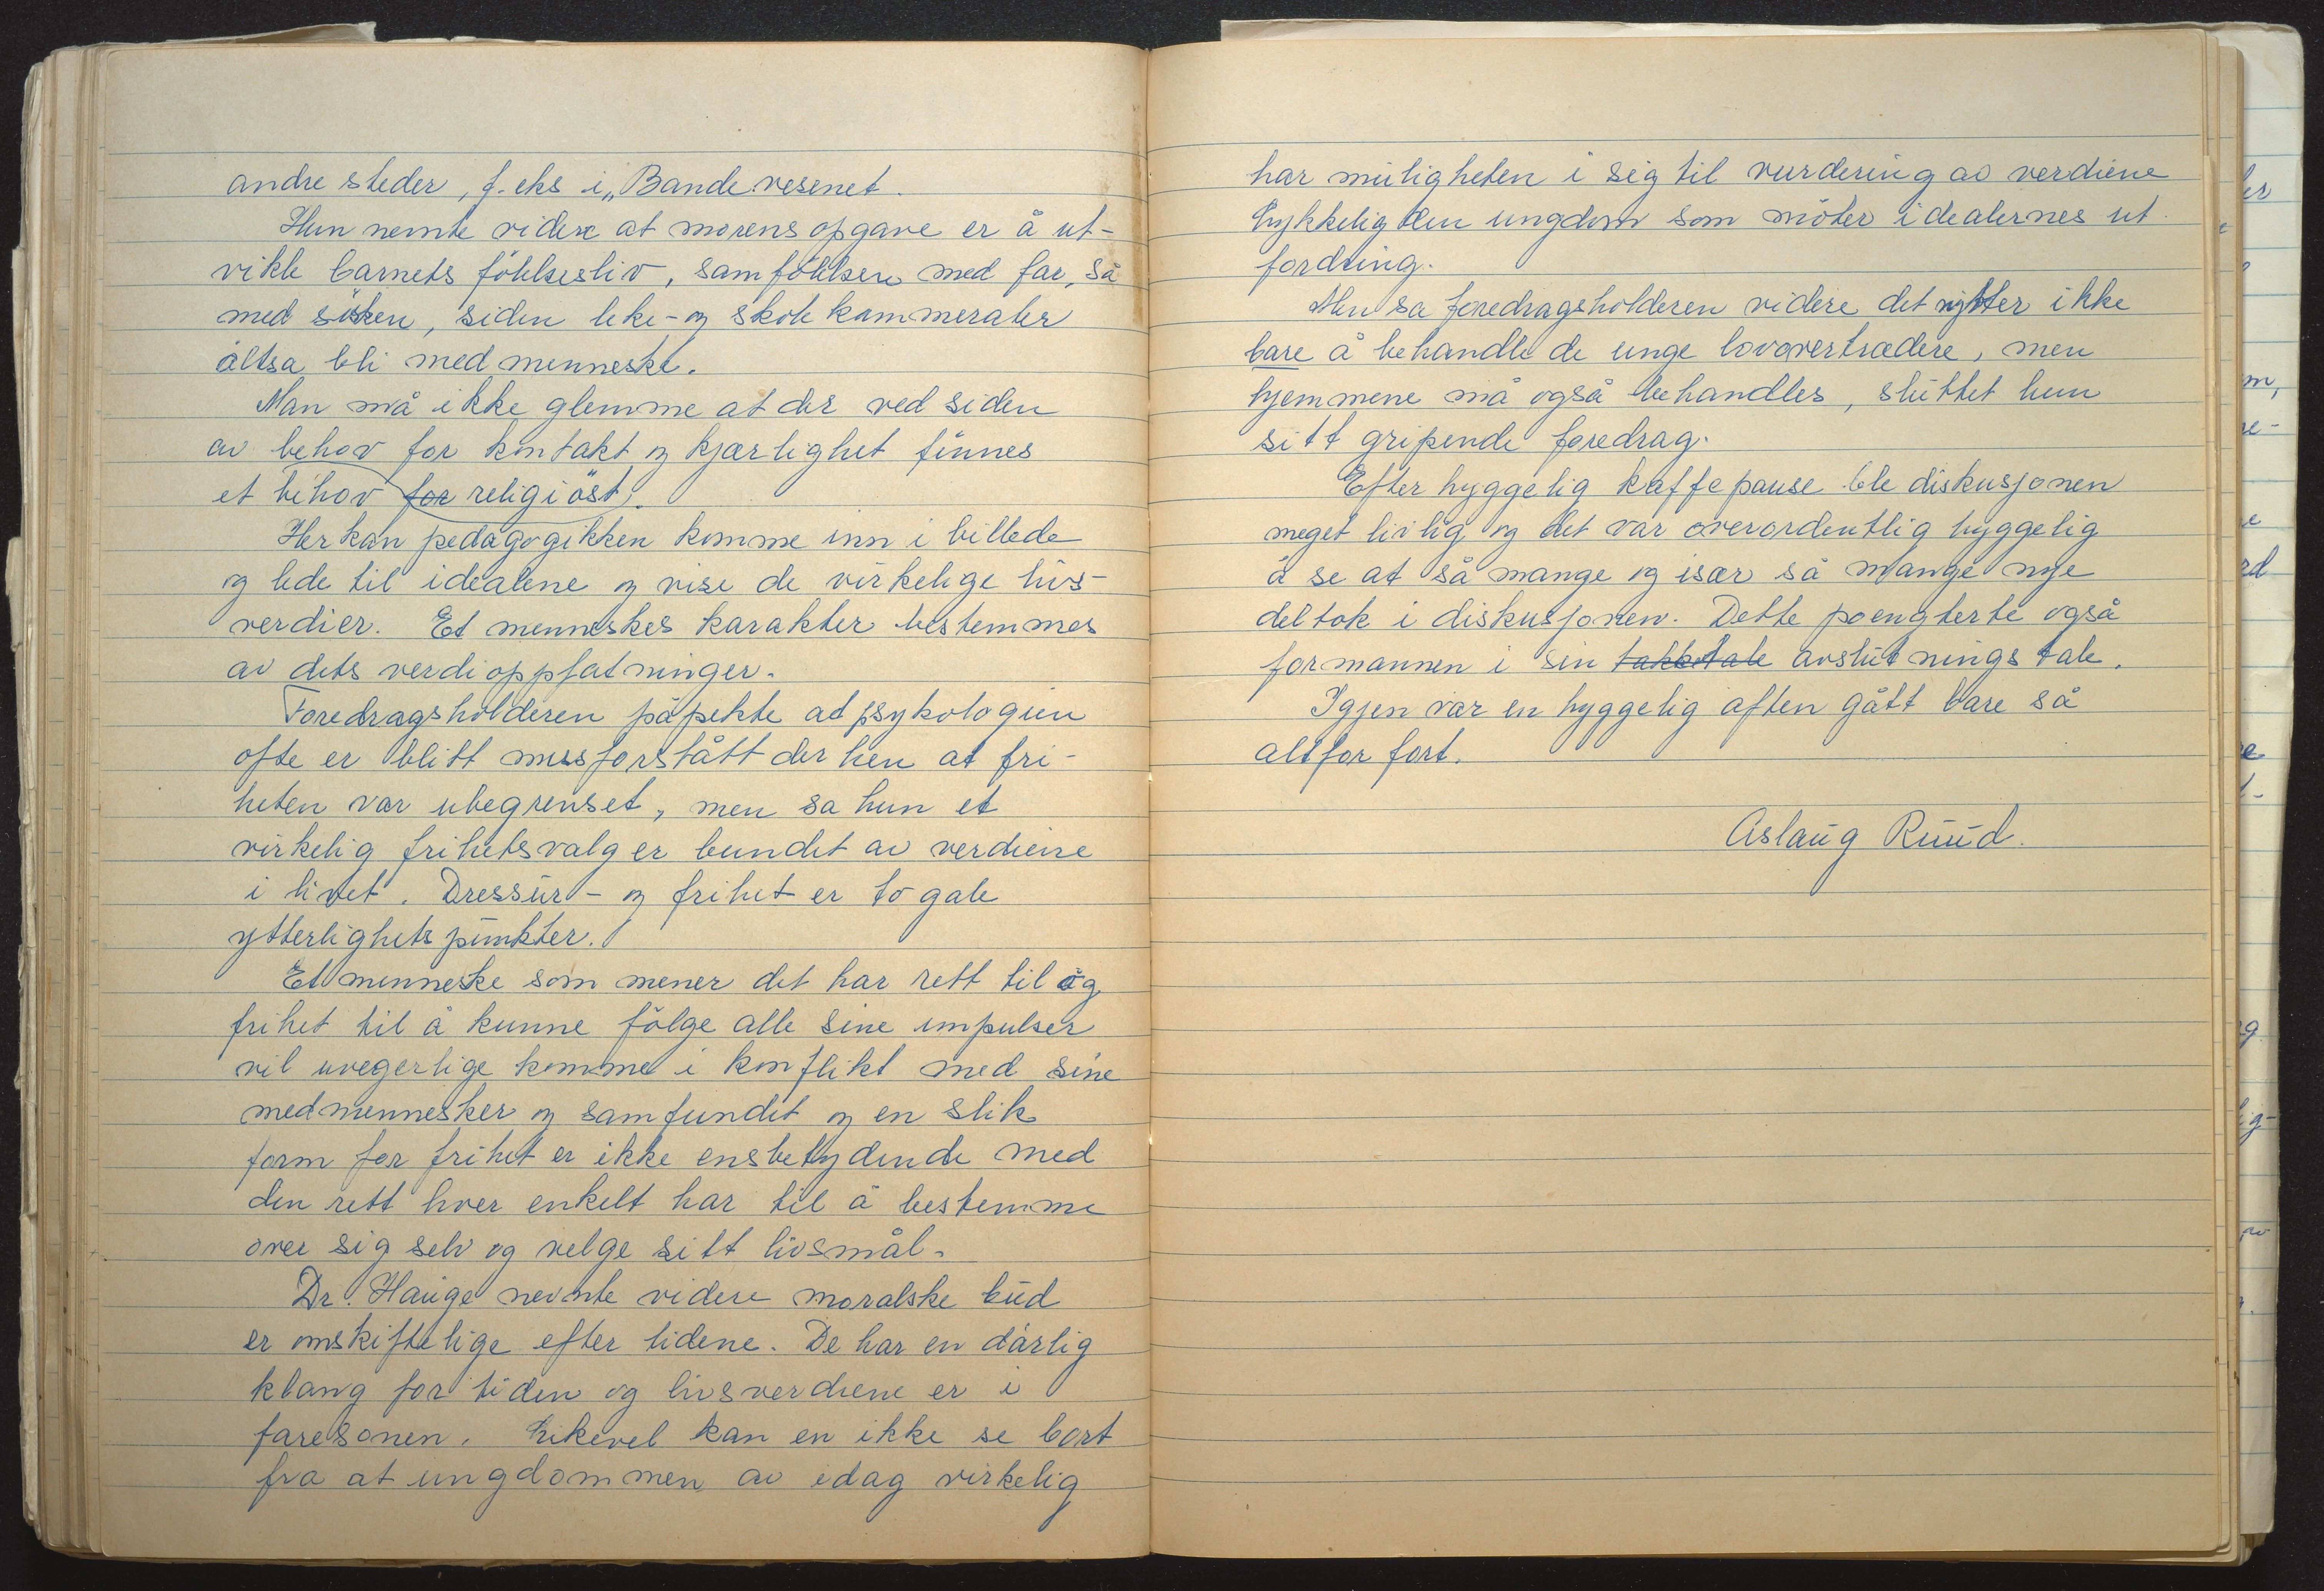 andre steder, f. eks i „Bandevesenet.
Hun nemte videre at morens opgave er å ut-
vikle barnets föhlsesliv, samföhlsen med far, så
med sösken, siden leke- og skole kammerater
altså bli medmenneske.
Man må ikke glemme at der ved siden
av behov for kontakt og kjærlighet finnes
et behov for religiöst.
Her kan pedagogikken komme inn i billede
og lede til idealene og vise de virkelige livs-
verdier. Et menneskes karakter bestemmes
av dets verdioppfatninger.
Foredragsholderen påpekte at psykologien
ofte er blitt missforstått der hen at fri-
heten var ubegrenset, men sa hun et
virkelig frihetsvalg er bundet av verdiene
i livet. Dressur- og frihet er to gale
ytterlighets punkter.
Et menneske som mener det har rett til og
frihet til å kunne fölge alle sine impulser
vil uvegerlige komme i konflikt med sine
medmennesker og samfundet og en slik
form for frihet er ikke ensbetydende med
den rett hver enkelt har til å bestemme
over sig selv og velge sitt livsmål.
Dr. Hauge nevnte videre moralske bud
er omskiftelige efter tidene. De har en dårlig
klang for tiden og livsverdiene er i
faresonen. Likevel kan en ikke se bort
fra at ungdommen av idag virkelig
har muligheten i sig til vurdering av verdiene
Lykkelig den ungdom som möter idealernes ut
fordring.
Men sa foredragsholderen videre det nytter ikke
bare å behandle de unge lovovertrædere, men
hjemmene må også behandles, sluttet hun
sitt gripende foredrag.
Efter hyggelig kaffepause ble diskusjonen
meget livlig og det var overordentlig hyggelig
å se at så mange og især så mange nye
deltok i diskusjonen. Dette poengterte også
formannen i sin takketale avslutnings tale.
Igjen var en hyggelig aften gått bare så
altfor fort.
Aslaug Ruud.